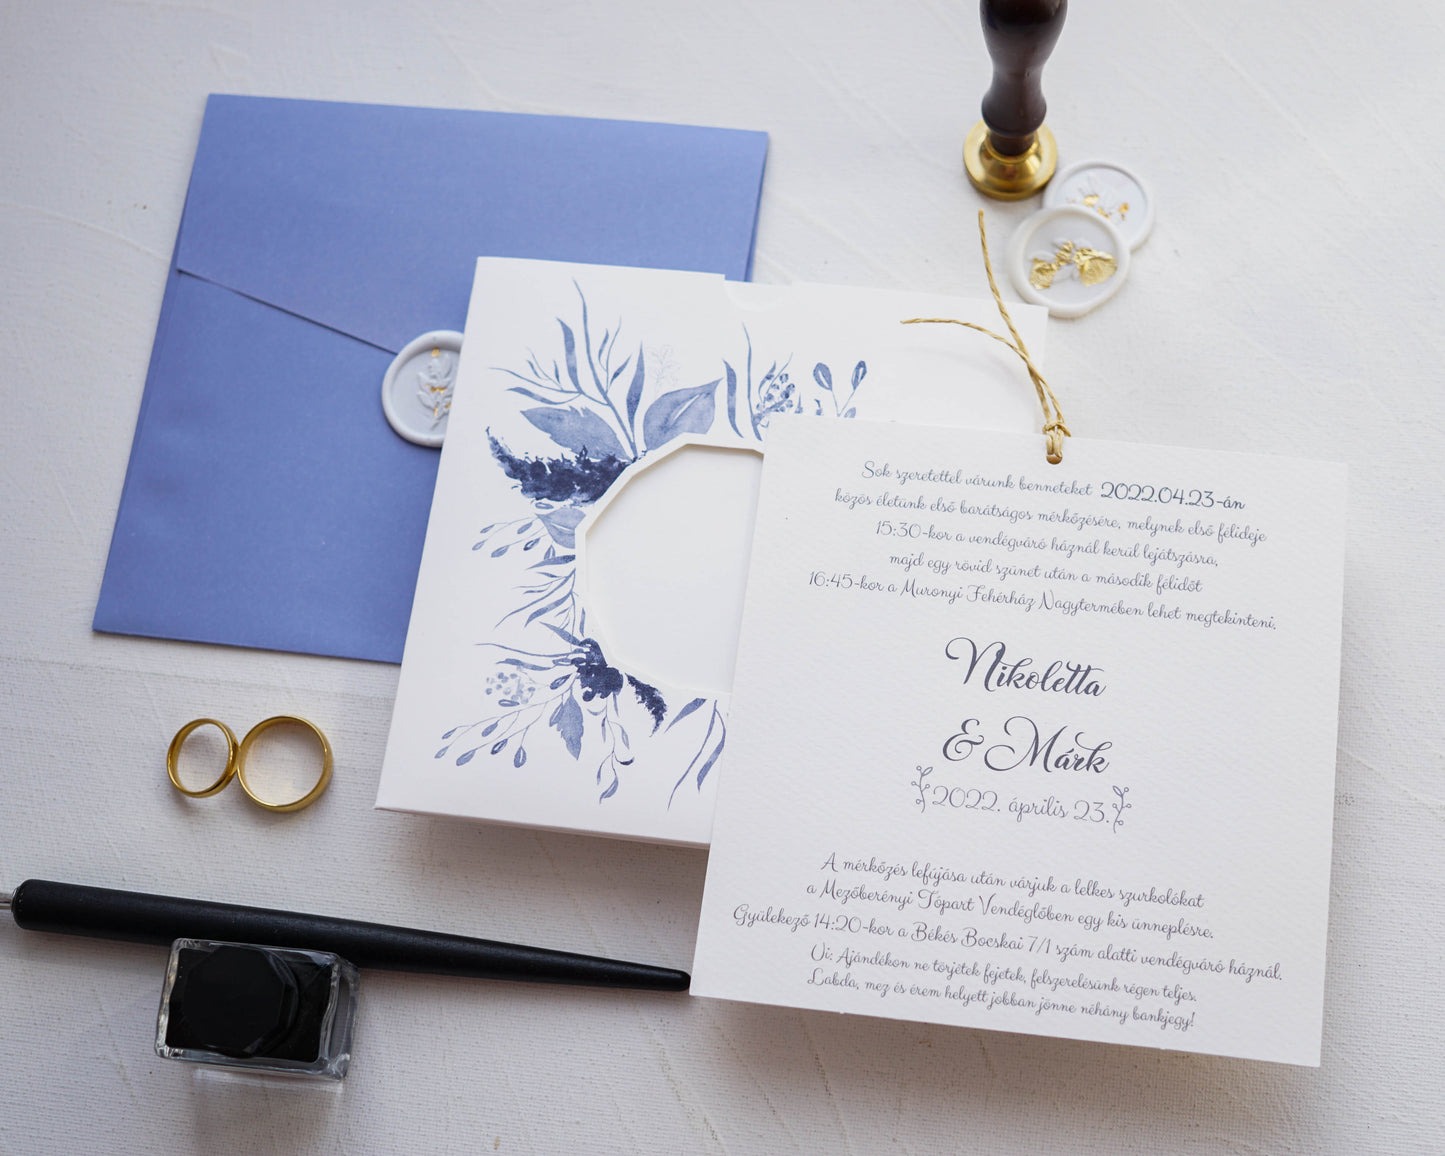 Sok szeretettel várunk benneteket 2022.04.23-án
közös életünk első barátságos mérkőzésére, melynek első félideje
15:30-kor a vendégváró háznál kerül lejátszásra,
majd egy rövid szünet után a második félidőt
16:45-kor a Muronyi Fehérház Nagytermében lehet megtekinteni.
Nikoletta
& Márk
2022. április 23.
A mérkőzés lefújása után várjuk a lelkes szurkolókat
a Mezőberényi Tópart Vendéglőben egy kis ünneplésre.
Gyülekező 14:20-kor a Békés Bocskai 7/1 szám alatti vendégváró háznál.
Ui: Ajándékon ne törjétek fejetek, felszerelésünk régen teljes.
Labda, mez és érem helyett jobban jönne néhány bankjegy!